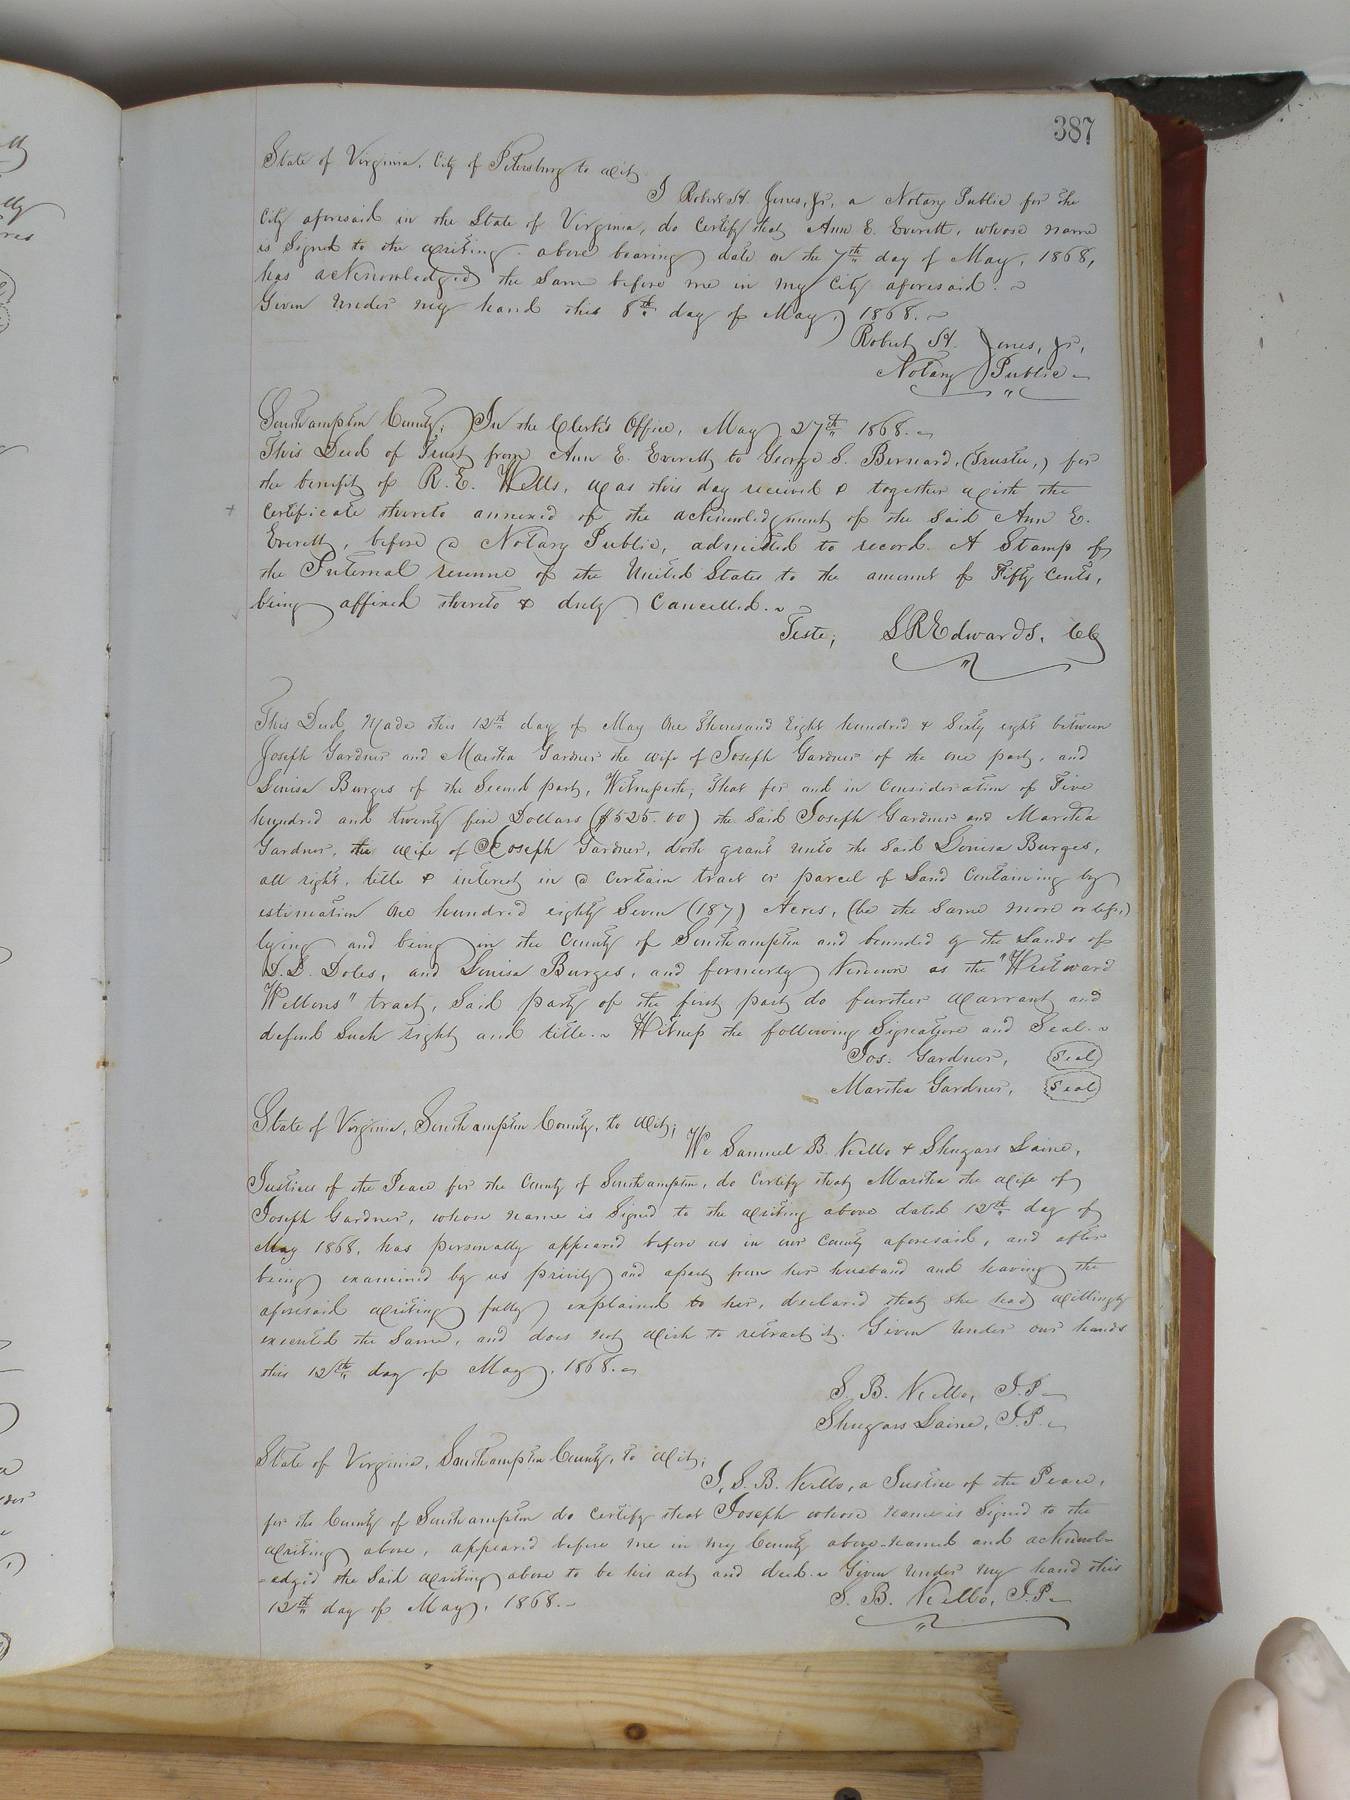 387
State of Virginia, City of Petersburg to wit,
I Robert H. Jones, Jr, a Notary Public for the
City aforesaid in the State of Virginia, do certify that Ann E. Everett, whose name
is Signed to the writing above bearing date on the 7th day of May, 1868,
has acknowledged the same before me in my City aforesaid.
Given under my hand this 8th day of May, 1868.
Robert H. Jones, Jr,
Notary Public
Southampton County; In the Clerk's Office, May 27th 1868.
This Deed of Trust from Ann E. Everett to George S. Bernard, (Trustee,) for
the benefit of R. E. Wells, was this day received & together with the
certificate thereto annexed of the acknowledgment of the said Ann E.
Everett, before a Notary Public, admitted to record. A Stamp of
the Internal revenue of the United States to the amount of Fifty Cents,
being affixed thereto & duly Cancelled.
Teste; L R Edwards, CC
This Deed, Made this 12th day of May One Thousand Eight hundred & Sixty eight between
Joseph Gardner and Martha Gardner the wife of Joseph Gardner of the one part, and
Louisa Burges of the Second part, Witnesseth; That for and in Consideration of Five
hundred and twenty five Dollars ($525.00) the said Joseph Gardner and Martha
Gardner, the wife of Joseph Gardner, doth grant unto the said Louisa Burges,
all right, title & interest in a certain tract or parcel of Land Containing by
estimation One hundred eighty Seven (187) Acres, (be the same more or less)
lying and being in the County of Southampton and bounded by the Lands of
D. Doles, and Louisa Burges, and formerly known as the "Westward
Wellons" tract, Said party of the first part do further warrant and
defend such right and title. Witness the following Signature and Seal.
Jos: Gardner, Seal
Martha Gardner, Seal
State of Virginia, Southampton County, to wit;
We Samuel B. Kello & Shugars Laine,
Justices of the Peace for the County of Southampton, do certify that Martha the wife of
Joseph Gardner, whose name is Signed to the writing above dated 12th day of
May 1868, has personally appeared before us in our County aforesaid, and after
being examined by us privily and apart from her husband and having the
aforesaid writing fully explained to her, declared that she had willingly
executed the same, and does not wish to retract it. Given under our hands
this 12th day of May, 1868.
S. B. Kello, J.P.
Shugars Laine, J.P.
State of Virginia, Southampton County, to wit;
I, S. B. Kello, a Justice of the Peace,
for the County of Southampton do certify that Joseph whose name is Signed to the
writing above, appeared before me in my County above-named and acknowl-
-edged the said writing above to be his act and deed. Given under my hand this
12th day of May, 1868.
S. B. Kello, J.P.